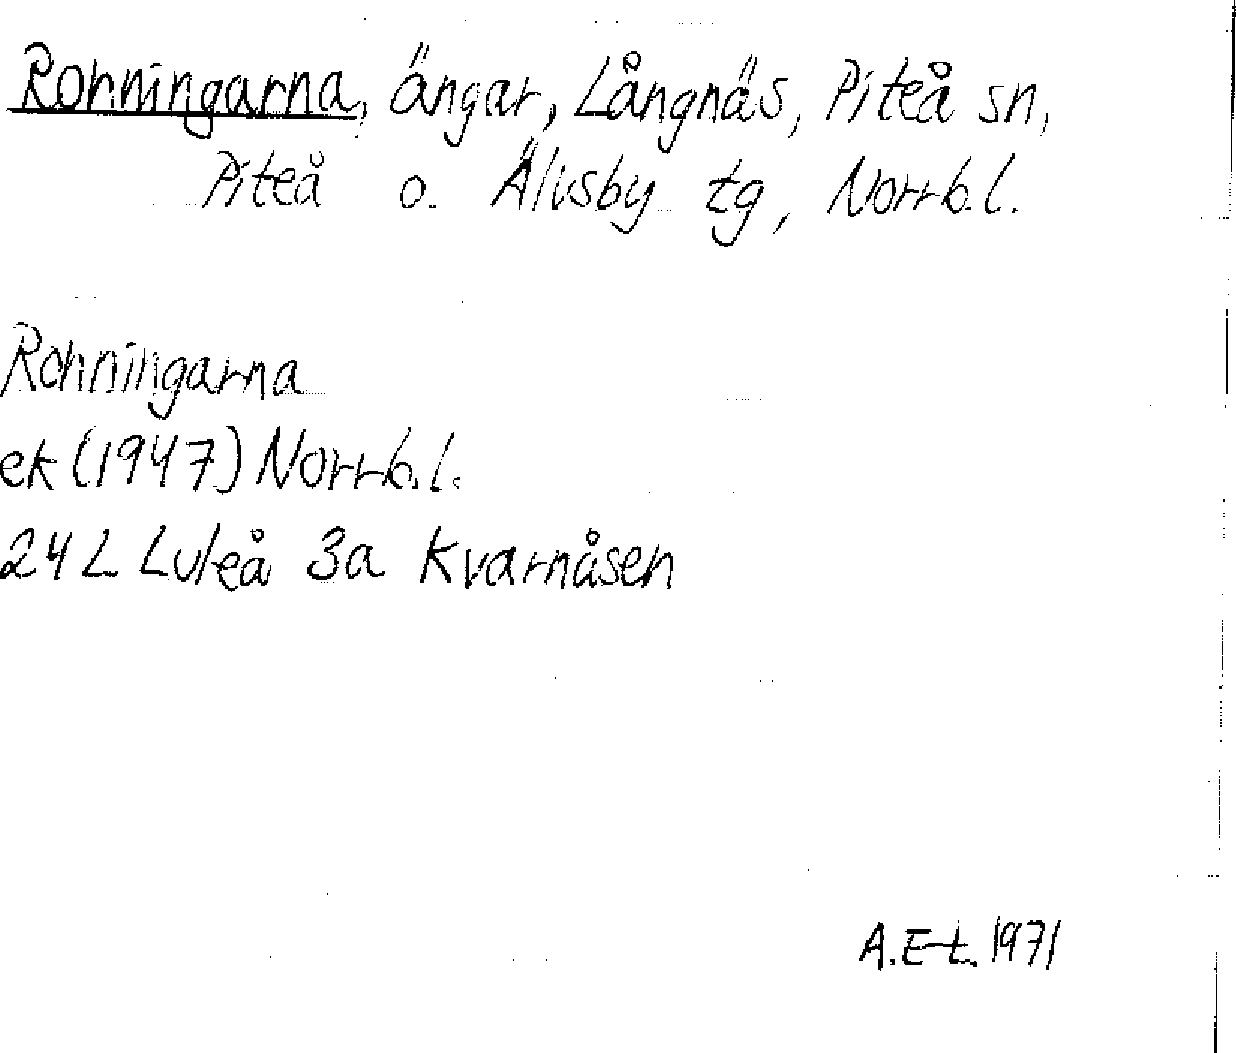 Rohningarna, ängar, Långnäs, Piteå sn,
Piteå o. Älvsby tg, Norrb.l.
Rohningarna
ek (1947) Norrb.l.
24 L Luleå 3a Kvarnåsen
A.E-t. 1971